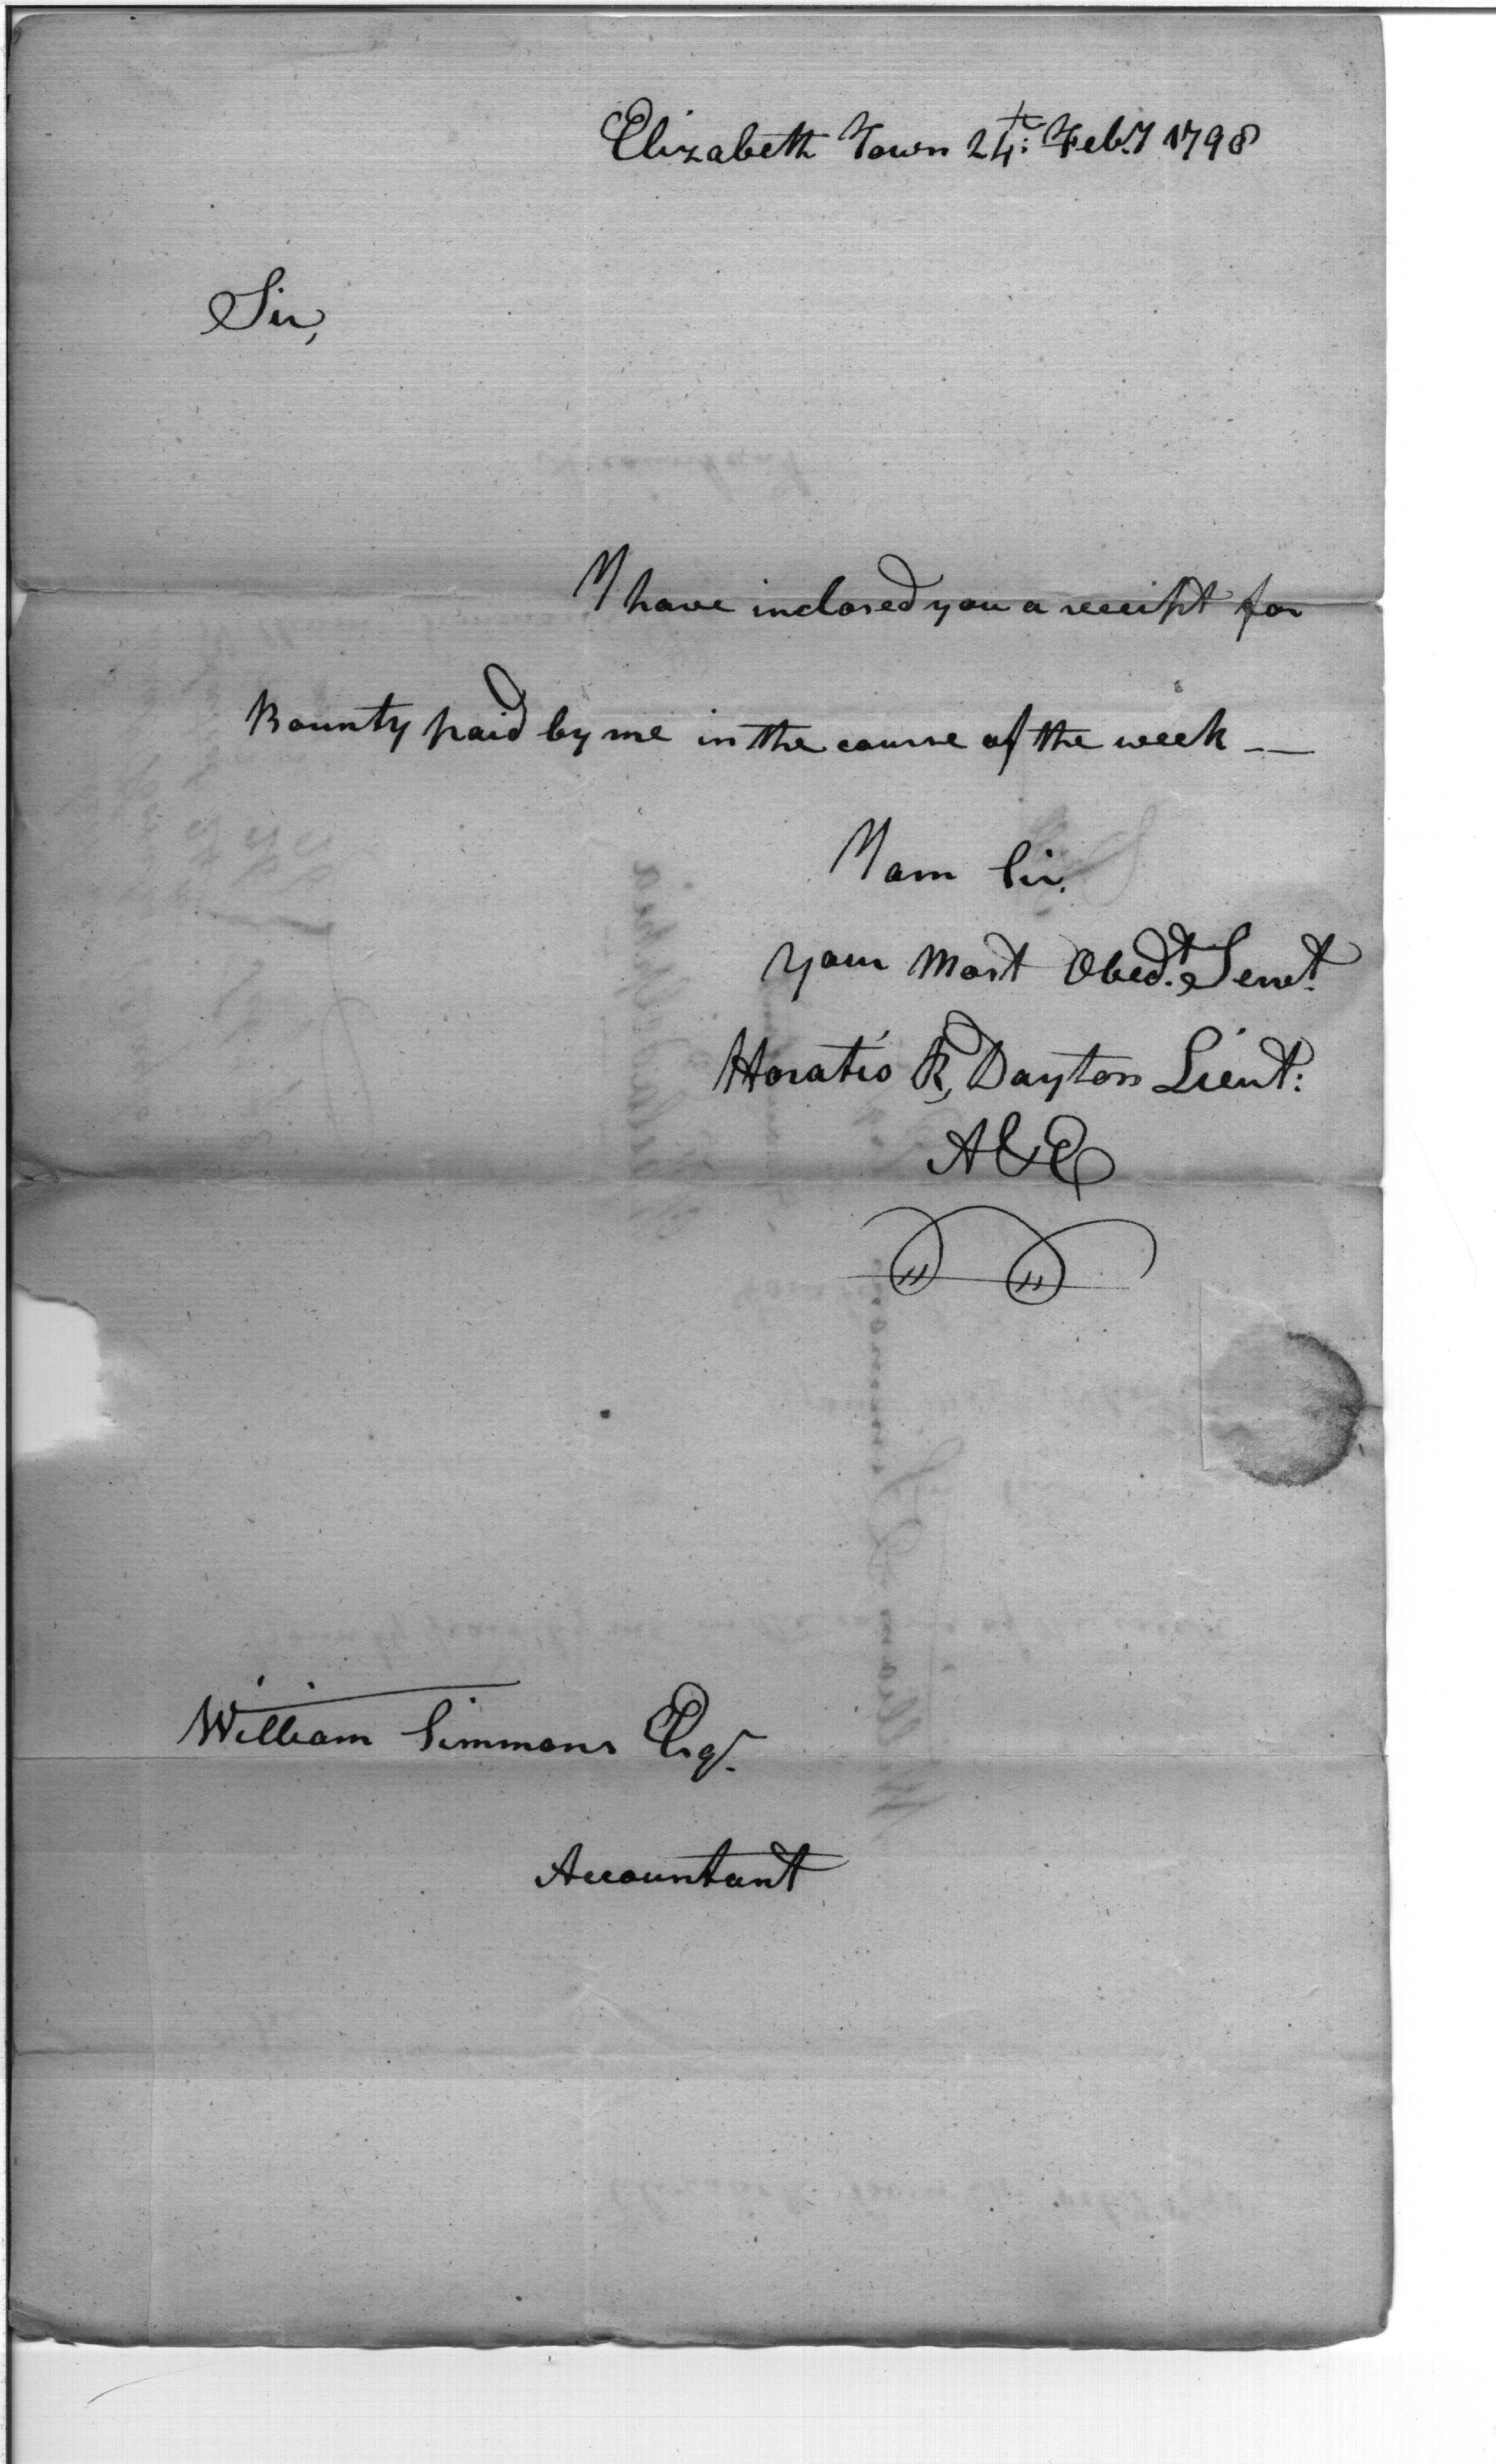 Elizabeth Town 24th: Feby 1798
Sir,
I have inclosed you a receipt for
Bounty paid by me in the course of the week —
I am Sir.
your Most Obedt. Servt.
Horatio R, Dayton Lieut:
A&E
William Simmons Esqr.
Accountant